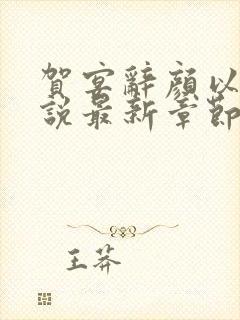 賀宴辭顏以
說最新章節
王莽